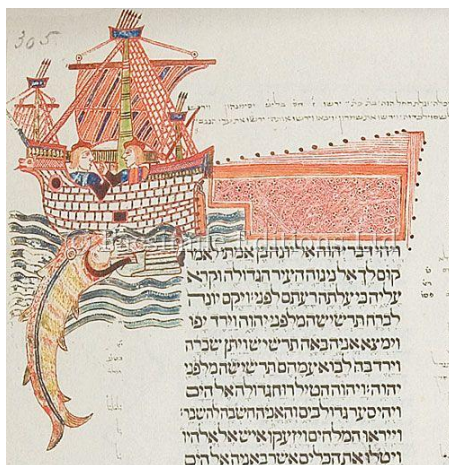 305
© Facsimile Editions Ltd
ויהי דבר יהוה אל יונה בן אמתי לאמר
קום לך אל נינוה העיר הגדולה וקרא
עליה כי עלתה רעתם לפני ויקם יונה
לברח תרשישה מלפני יהוה וירד יפו
וימצא אניה באה תרשיש ויתן שכרה
וירד בה לבוא עמהם תרשישה מלפני
יהוה׃ ויהוה הטיל רוח גדולה אל הים
ויהי סער גדול בים והאניה חשבה להשבר׃
וייראו המלחים ויזעקו איש אל אלהיו
ויטלו את הכלים אשר באניה אל הים